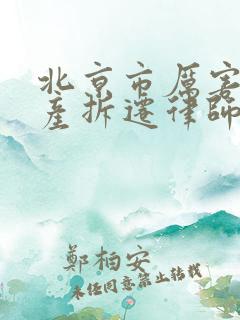 北京市厲害
產拆遷律師
鄭柏安
未经同意禁止转载